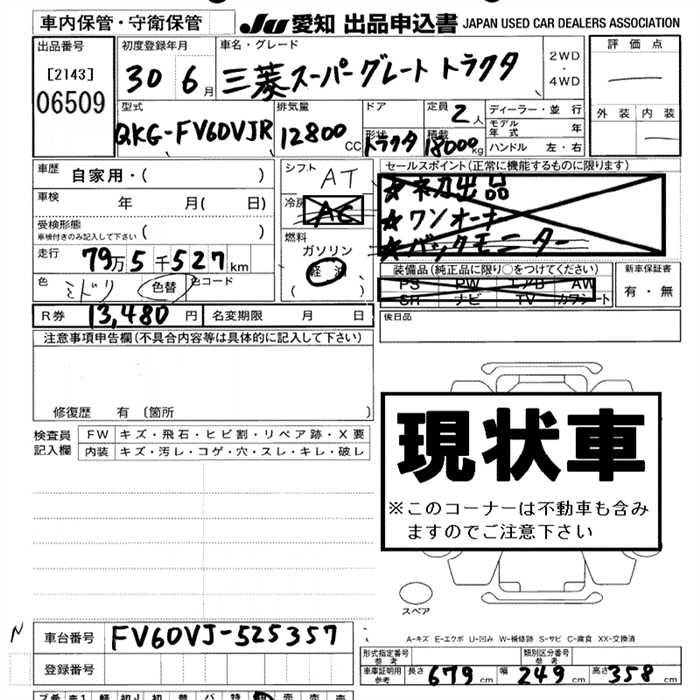 車内保管・守衛保管 JU 愛知 出品申込書 JAPAN USED CAR DEALERS ASSOCIATION
出品番号 初度登録年月 車名・グレード 2WD ・ 4WD 評価点
[2143] 30 6月 三菱スーパーグレート トラクタ
06509 型式 排気量 ドア 定員 2人 ディーラー・並行 外装 内装
QKG-FV60VJR 12800cc 形状 トラクタ 積載 18000kg モデル年式 年
ハンドル 左・右
車歴 自家用・( ) シフト AT セールスポイント(正常に機能するものに限ります)
車検 年 月( 日) 冷房 AC ★ネカ出品
★ワンオーナー
受検形態 ( ) 燃料 ★バックモニター
車検付きのみ記入して下さい
走行 79万5千527km ガソリン 装備品(純正品に限り○をつけてください) 新車保証書
色 ミドリ 色替 色コード 軽油 ( ) PS PW エアB AW 有・無
SR ナビ TV カワシート
R券 13,480円 名変期限 月 日 後日品
注意事項申告欄(不具合内容等は具体的に記入して下さい)
現状車
修復歴 有 〔箇所 〕
検査員記入欄 FW キズ・飛石・ヒビ割・リペア跡・X要
内装 キズ・汚レ・コゲ・穴・スレ・キレ・破レ
※このコーナーは不動車も含み
ますのでご注意下さい
スペア
N 車台番号 FV60VJ-525357 A-キズ E-エクボ U-凹み W-補修跡 S-サビ C-腐食 XX-交換済
登録番号 形式指定番号 参考 類別区分番号 参考
車庫証明用 参考 長さ 679cm 幅 249cm 高さ 358cm